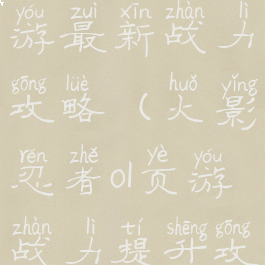 yóu zuì xīn zhàn lì
游最新战力
gōng lüè huǒ yǐng
攻略（火影
rěn zhě yè yóu
忍者ol页游
zhàn lì tí shēng gōng
战力提升攻